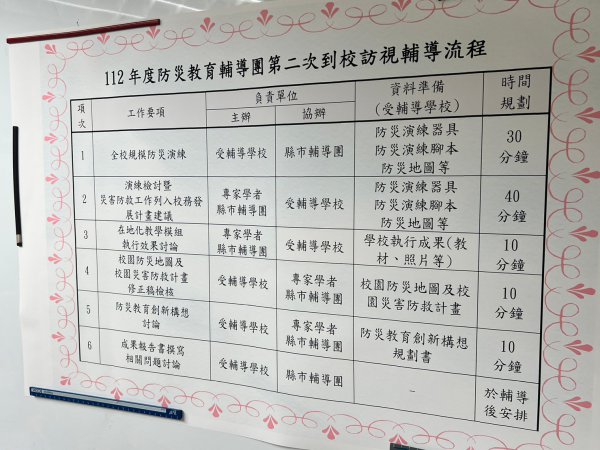 112年度防災教育輔導團第二次到校訪視輔導流程
項次 工作要項 負責單位 主辦 協辦 資料準備(受輔導學校) 時間規劃
1 全校規模防災演練 受輔導學校 縣市輔導團 防災演練器具 防災演練腳本 防災地圖等 30分鐘
2 演練檢討暨災害防救工作列入校務發展計畫建議 專家學者 縣市輔導團 受輔導學校 防災演練器具 防災演練腳本 防災地圖等 40分鐘
3 在地化教學模組執行效果討論 專家學者 縣市輔導團 受輔導學校 學校執行成果(教材、照片等) 10分鐘
4 校園防災地圖及校園災害防救計畫修正稿檢核 受輔導學校 專家學者 縣市輔導團 校園防災地圖及校園災害防救計畫 10分鐘
5 防災教育創新構想討論 受輔導學校 專家學者 縣市輔導團 防災教育創新構想規劃書 10分鐘
6 成果報告書撰寫相關問題討論 受輔導學校 縣市輔導團 - 於輔導後安排